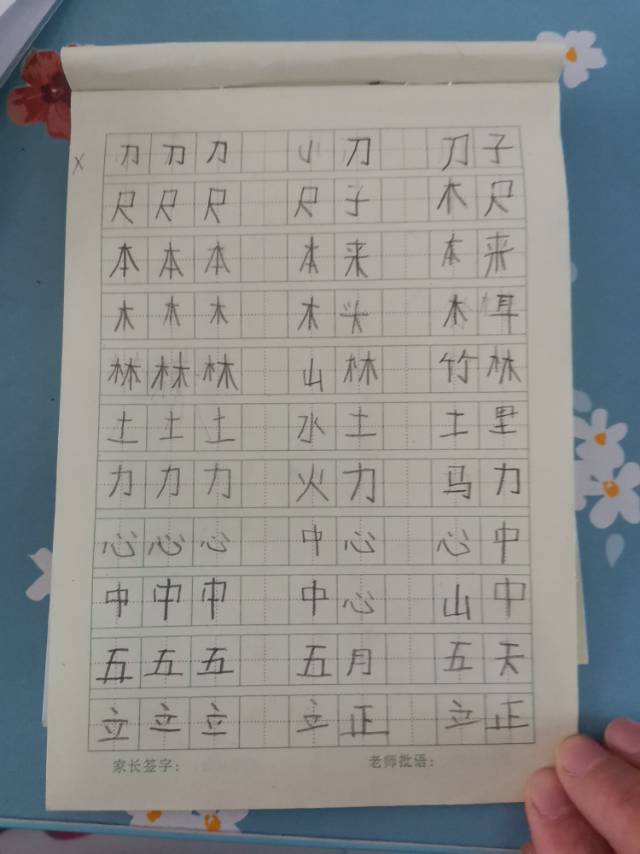 x
刀刀刀 小刀 刀子
尺尺尺 尺子 木尺
本本本 本来 本来
木木木 木头 木耳
林林林 山林 竹林
土土土 水土 土里
力力力 火力 马力
心心心 中心 心中
中中中 中心 山中
五五五 五月 五天
立立立 立正 立正
家长签字: 老师批语: